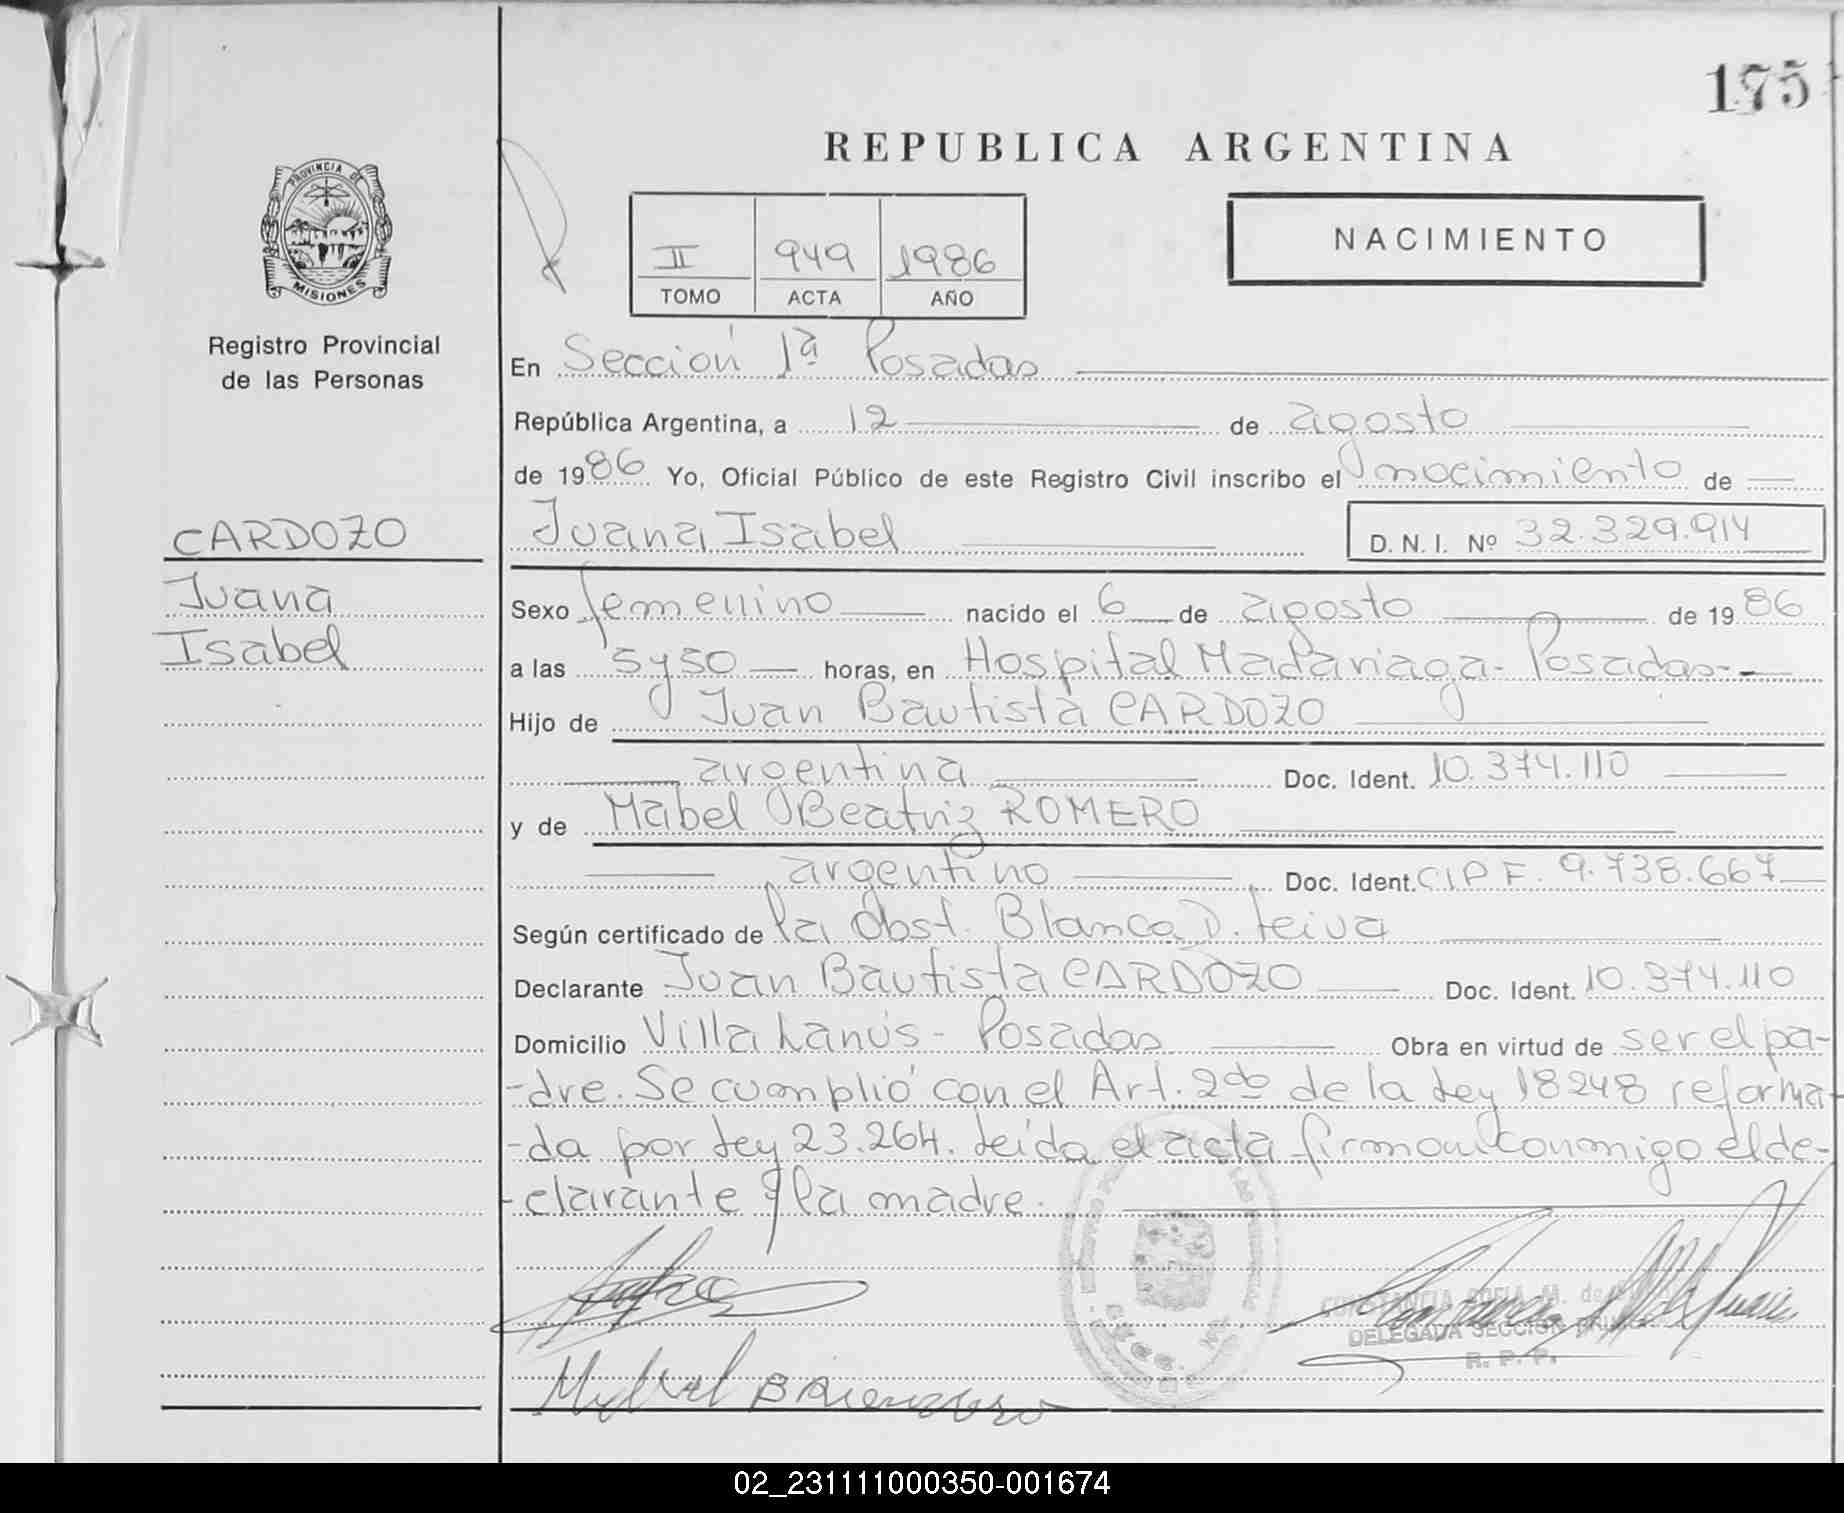 175
REPUBLICA ARGENTINA
PROVINCIA DE
MISIONES
II 949 1986
TOMO ACTA AÑO
NACIMIENTO
Registro Provincial
de las Personas
En Sección 1ª Posadas
República Argentina, a 12 de agosto
de 1986 Yo, Oficial Público de este Registro Civil inscribo el nacimiento de
CARDOZO
Juana Isabel D. N. I. Nº 32.329.914
Juana
Isabel
Sexo femenino nacido el 6 de agosto de 1986
a las 5 y 50 horas, en Hospital Madariaga - Posadas -
Hijo de Juan Bautista CARDOZO
argentina Doc. Ident. 10.374.110
y de Mabel Beatriz ROMERO
argentino Doc. Ident. CIPF. 9.738.667
Según certificado de la Obst. Blanca D. Leiva
Declarante Juan Bautista CARDOZO Doc. Ident. 10.374.110
Domicilio Villa Lanús - Posadas Obra en virtud de ser el pa-
-dre. Se cumplió con el Art. 2do de la Ley 18248 reforma-
-da por Ley 23.264. Leída el acta firman conmigo el de-
-clarante y la madre.
CONSTANCIA SOFIA M. de
DELEGADA SECCION PRIMERA
R. P. P.
02_231111000350-001674